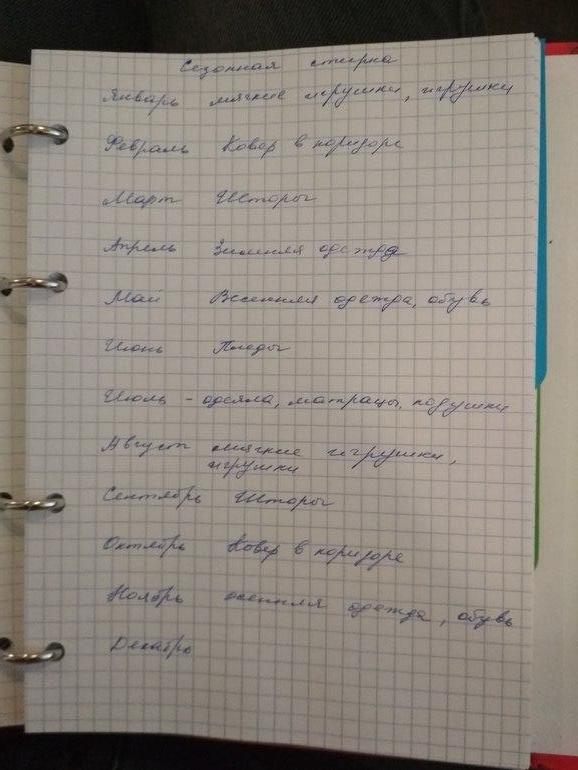 Сезонная стирка
Январь мягкие игрушки, игрушки
Февраль Ковер в коридоре
Март Шторы
Апрель Зимняя одежда
Май Весенняя одежда, обувь
Июнь Пледы
Июль - одеяла, матрацы, подушки
Август мягкие игрушки,
игрушки
Сентябрь Шторы
Октябрь Ковер в коридоре
Ноябрь осенняя одежда, обувь
Декабрь